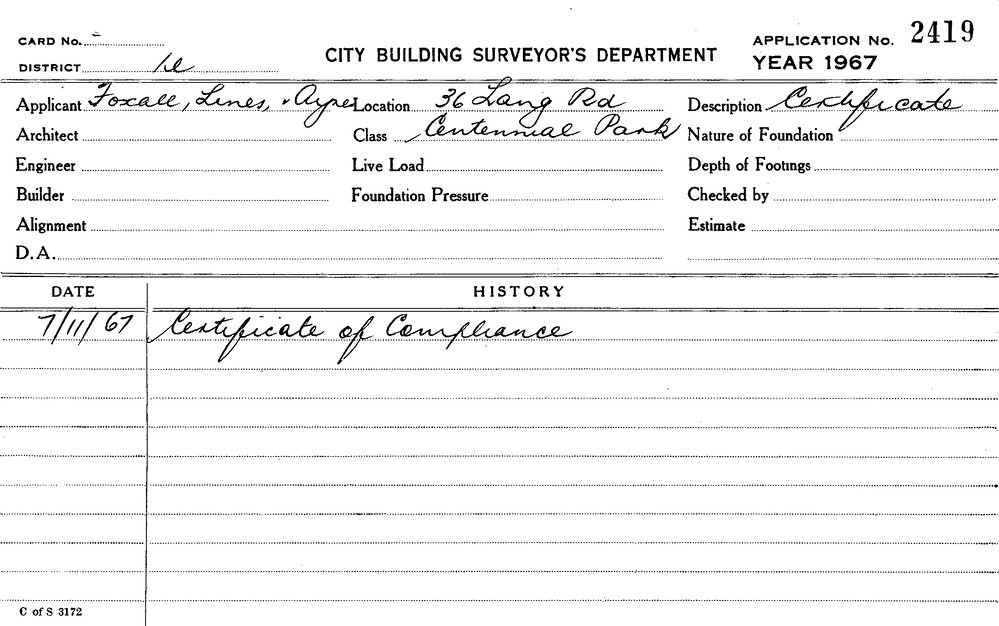 CARD No.
APPLICATION No. 2419
DISTRICT
CITY BUILDING SURVEYOR'S DEPARTMENT
YEAR 1967
Applicant Foxall, Lines, & Ayre Location 36 Lang Rd Description Certificate
Architect Class Centennial Park Nature of Foundation
Engineer Live Load Depth of Footings
Builder Foundation Pressure Checked by
Alignment Estimate
D.A.
DATE HISTORY
7/11/67 Certificate of Compliance
C of S 3172